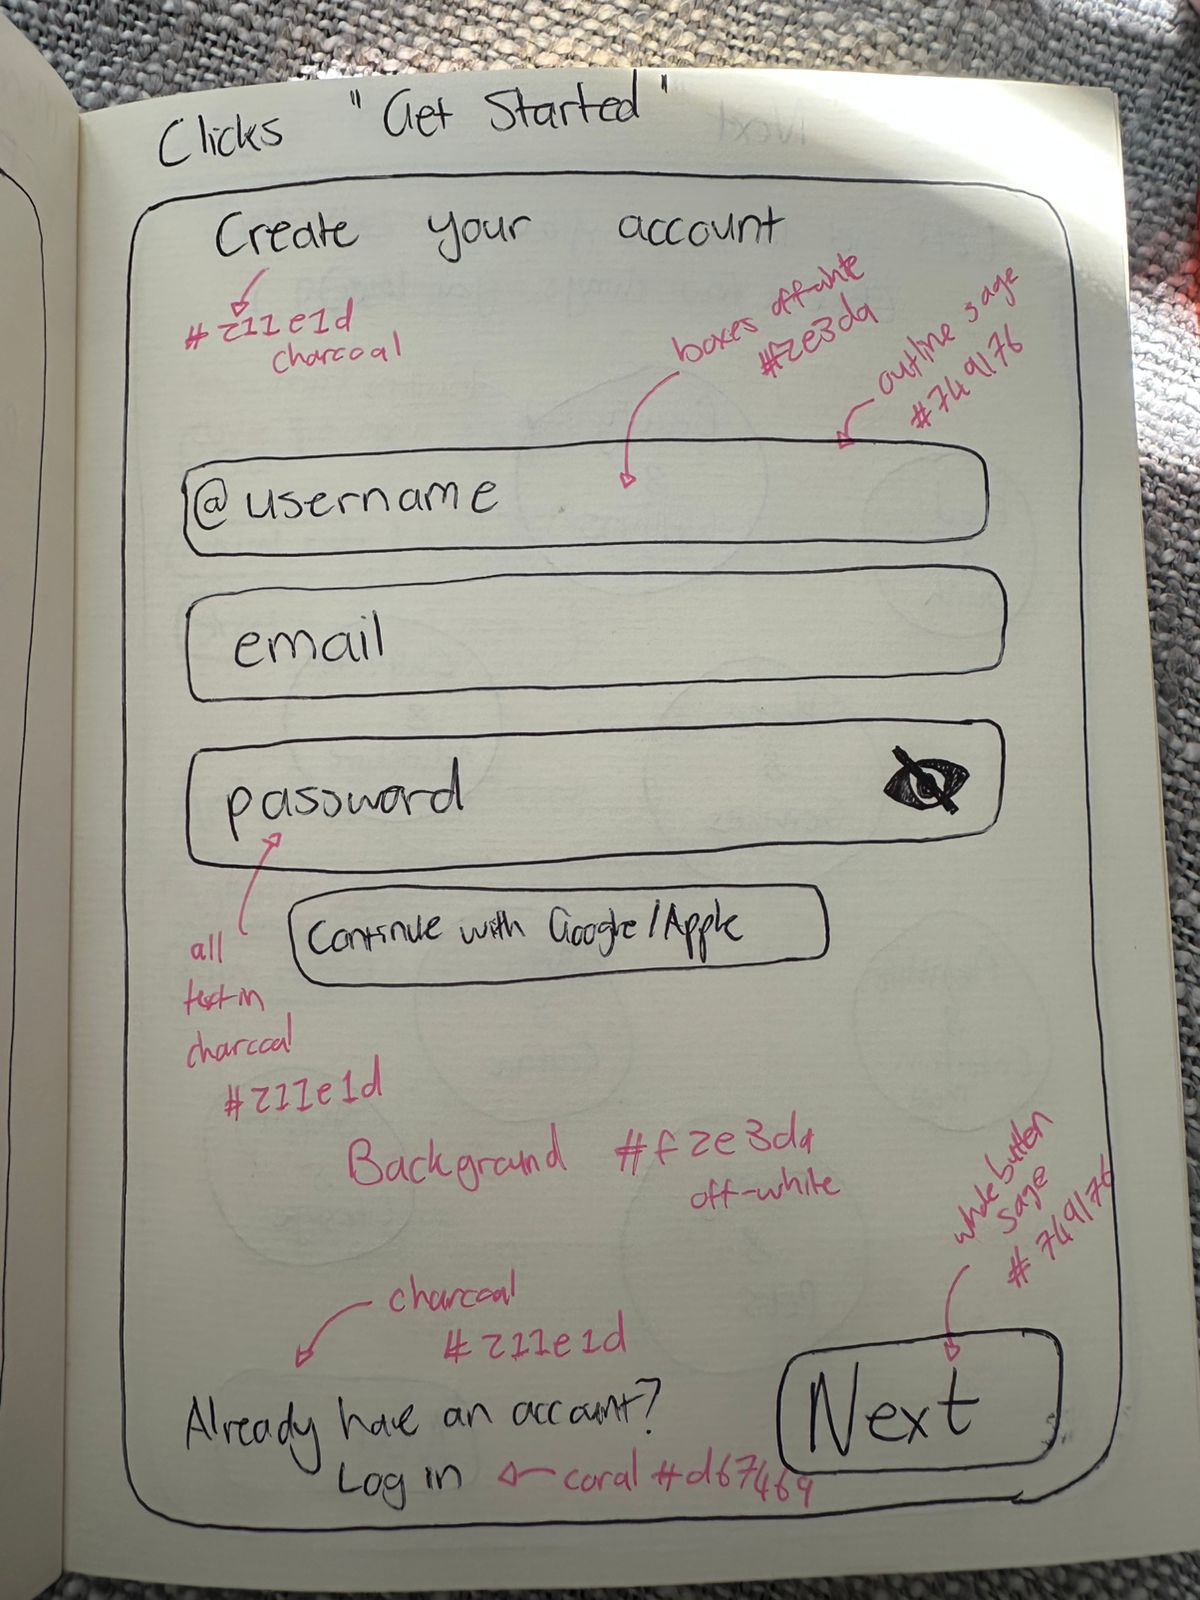 Clicks "Get Started"
Create your account
#211e1d
charcoal
boxes off-white
#f2e3da
outline sage
#749176
@username
email
password
Continue with Google/Apple
all
text in
charcoal
#211e1d
Background #f2e3da
off-white
whole button
sage
#749176
charcoal
#211e1d
Already have an account?
Log in
coral #d67469
Next